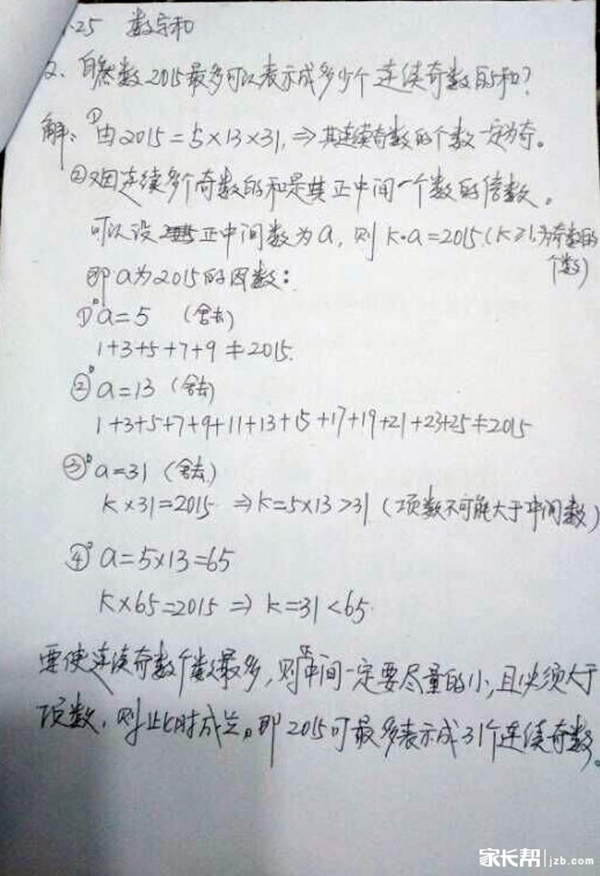 .25 数字和
2、自然数2015最多可以表示成多少个连续奇数的和?
解: ①由2015=5×13×31, ⇒其连续奇数的个数一定为奇。
②又因连续多个奇数的和是其正中间一个数的倍数。
可以设正中间数为a, 则 K·a=2015.(K≥1,为奇数的
个数)
即a为2015的因数:
①° a=5 (舍去)
1+3+5+7+9≠2015.
②° a=13 (舍去)
1+3+5+7+9+11+13+15+17+19+21+23+25≠2015
③° a=31 (舍去)
K×31=2015 ⇒K=5×13>31 (项数不可能大于中间数)
④° a=5×13=65
K×65=2015 ⇒ K=31<65.
要使连续奇数个数最多, 则中间一定要尽量的小, 且必须大于
项数, 则此时成立。即2015可最多表示成31个连续奇数。
家长帮 jzb.com